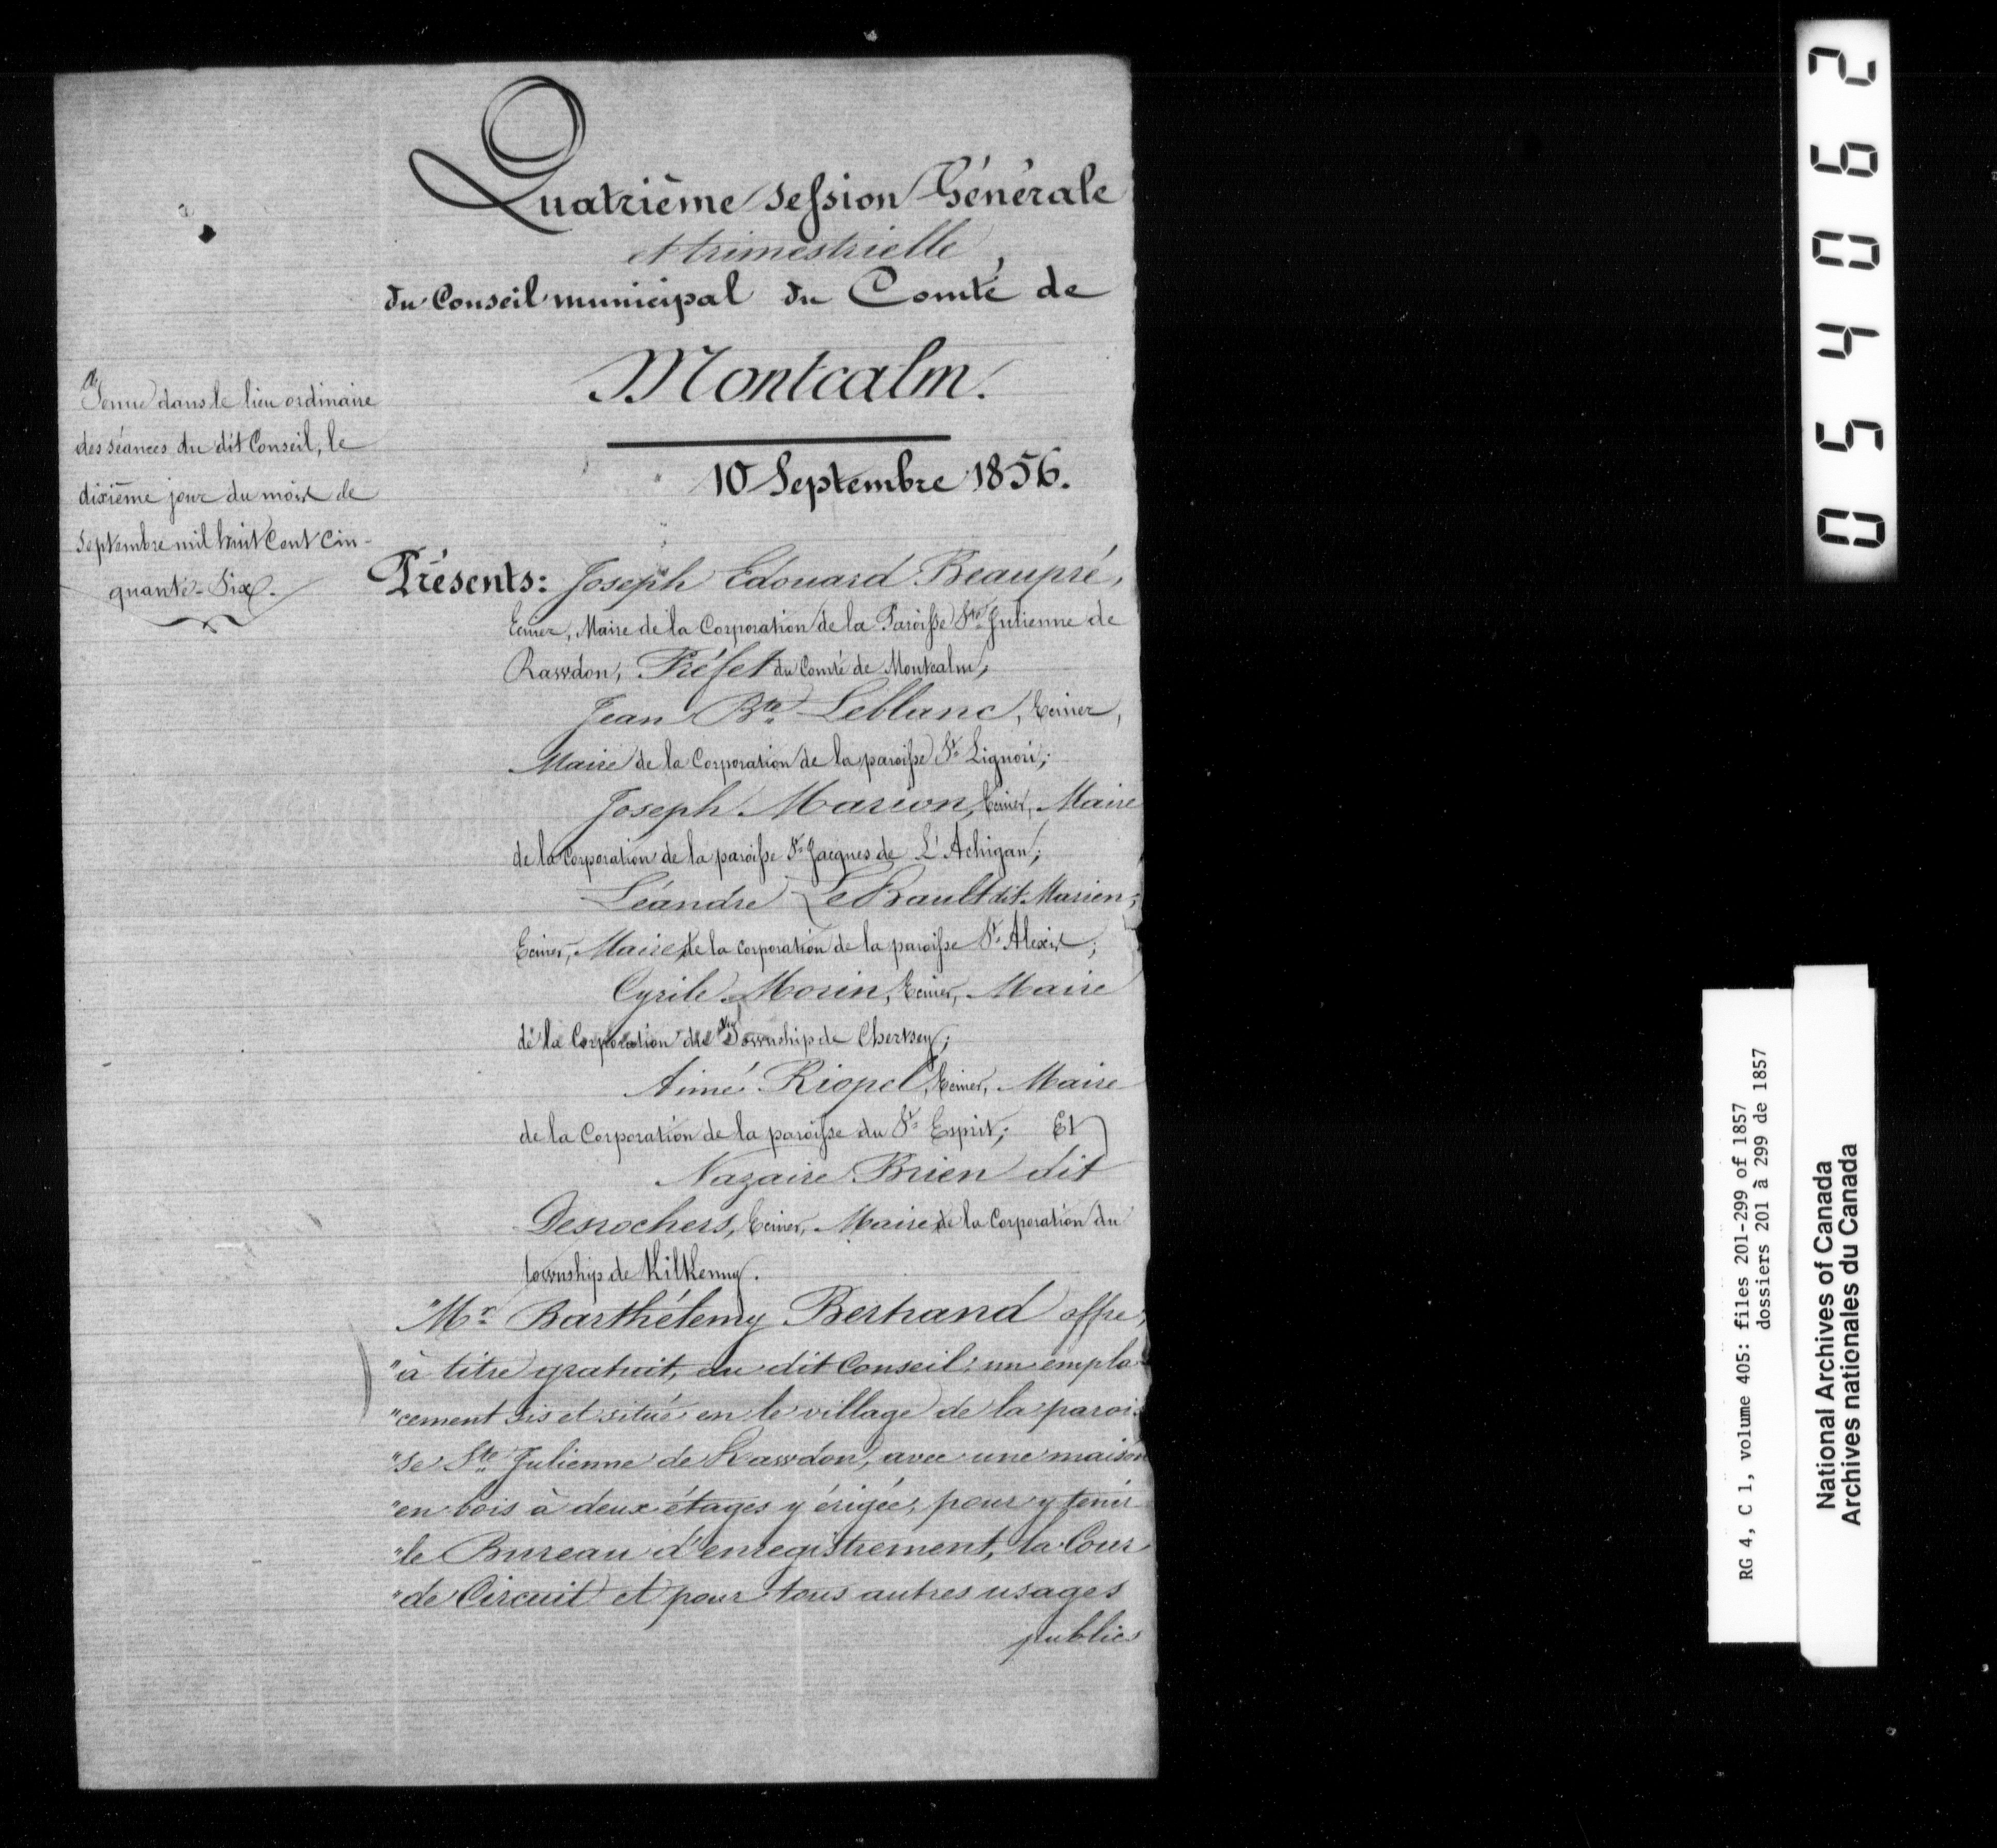 Quatrième Session Générale
et trimestrielle
du Conseil municipal du Comté de
Montcalm.
10 Septembre 1856.
Tenue dans le lieu ordinaire
des séances du dit Conseil, le
dixième jour du mois de
Septembre mil huit Cent Cin-
quante-Six.
Présents: Joseph Edouard Beaupré,
Ecuier, Maire de la Corporation de la Paroisse Ste Julienne de
Rawdon, Préfet du Comté de Montcalm,
Jean Bte Leblanc, Ecuier,
Maire de la Corporation de la paroisse St Liguori;
Joseph Marion, Ecuier, Maire
de la Corporation de la paroisse St Jacques de L'Achigan;
Léandre dit Marien,
Ecuier, Maire de la corporation de la paroisse St Alexis;
Cyrile Morin, Ecuier, Maire
de la Corporation du Township de Chertsey;
Aimé Riopel, Ecuier, Maire
de la Corporation de la paroisse du St Esprit; Et
Nazaire Brien dit
Desrochers, Ecuier, Maire de la Corporation du
township de Kilkenny.
"Mr Barthélemy Bertrand offre,
"à titre gratuit, au dit Conseil; un empla-
"cement sis et situé en le village de la parois-
"se Ste Julienne de Rawdon, avec une maison
"en bois à deux étages y érigée, pour y tenir
"le Bureau d'enregistrement, la Cour
"de Circuit et pour tous autres usages
publics
054062
RG 4, C 1, volume 405: files 201-299 of 1857
dossiers 201 à 299 de 1857
National Archives of Canada
Archives nationales du Canada